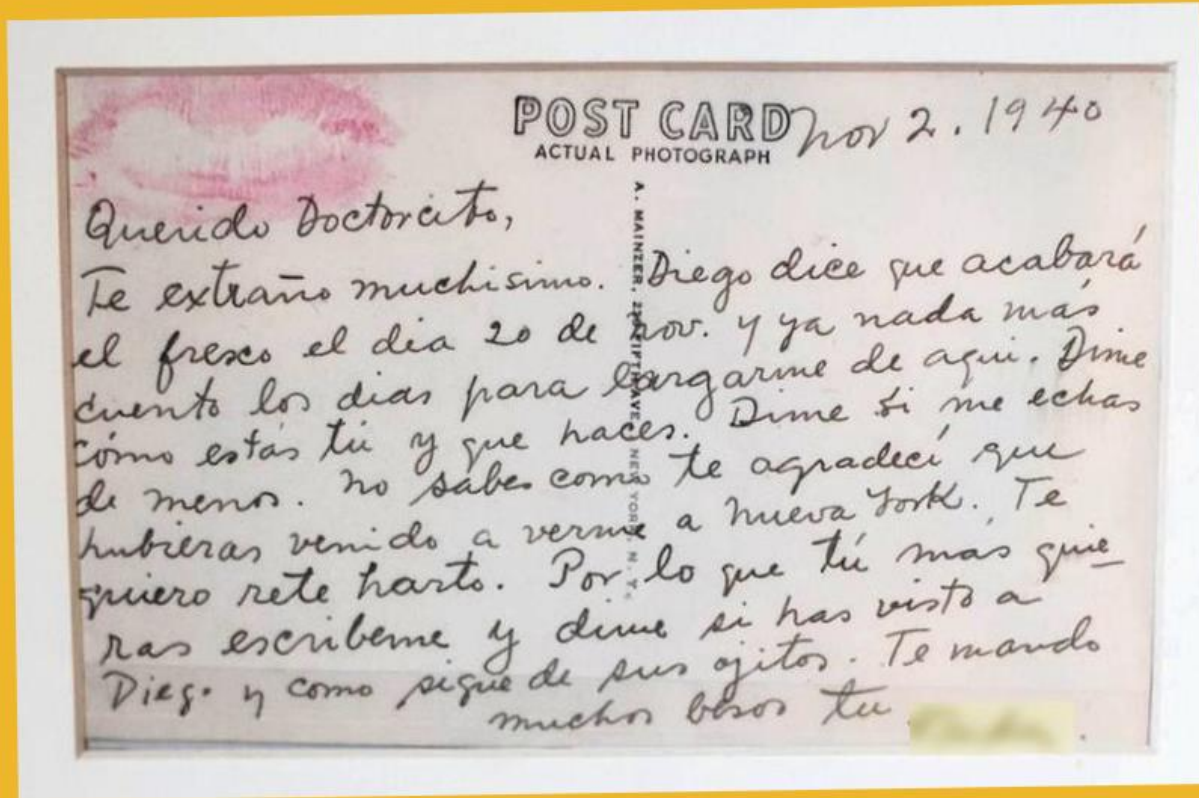 POST CARD
ACTUAL PHOTOGRAPH
Nov 2. 1940
Querido Doctorcito,
Te extraño muchisimo. Diego dice que acabará
el fresco el dia 20 de Nov. y ya nada más
cuento los dias para largarme de aqui. Dime
cómo estás tú y que haces. Dime si me echas
de menos. No sabes como te agradecí que
hubieras venido a verme a Nueva York. Te
quiero rete harto. Por lo que tú mas quie
ras escribeme y dime si has visto a
Diego y como sigue de sus ojitos. Te mando
muchos besos tu
A. MAINZER, NEW YORK, N. Y.